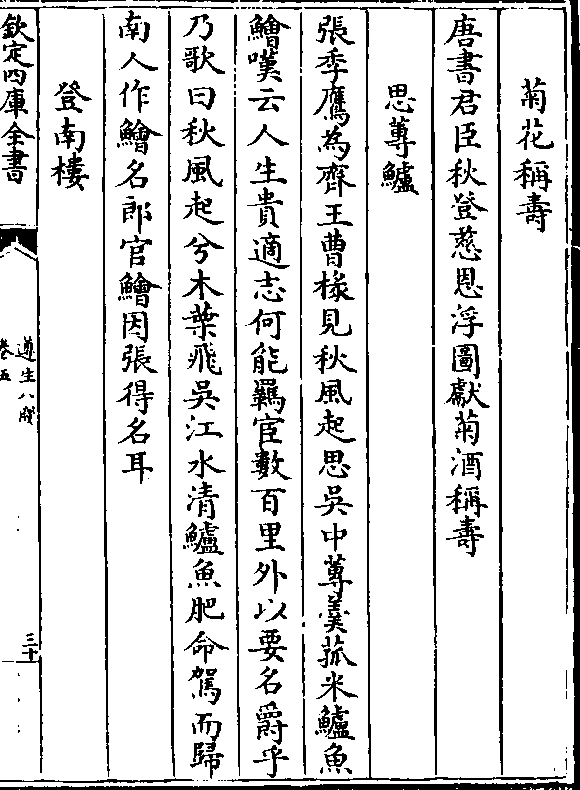 菊花稱壽
唐書君臣秋登慈恩浮圖獻菊酒稱壽
思蓴鱸
張季鷹為齊王曹掾見秋風起思吳中蓴羹菰米鱸魚
鱠嘆云人生貴適志何能羈宦數百里外以要名爵乎
乃歌曰秋風起兮木葉飛吳江水清鱸魚肥命駕而歸
南人作鱠名郎官鱠因張得名耳
登南樓
欽定四庫全書
遵生八牋
卷五
三十